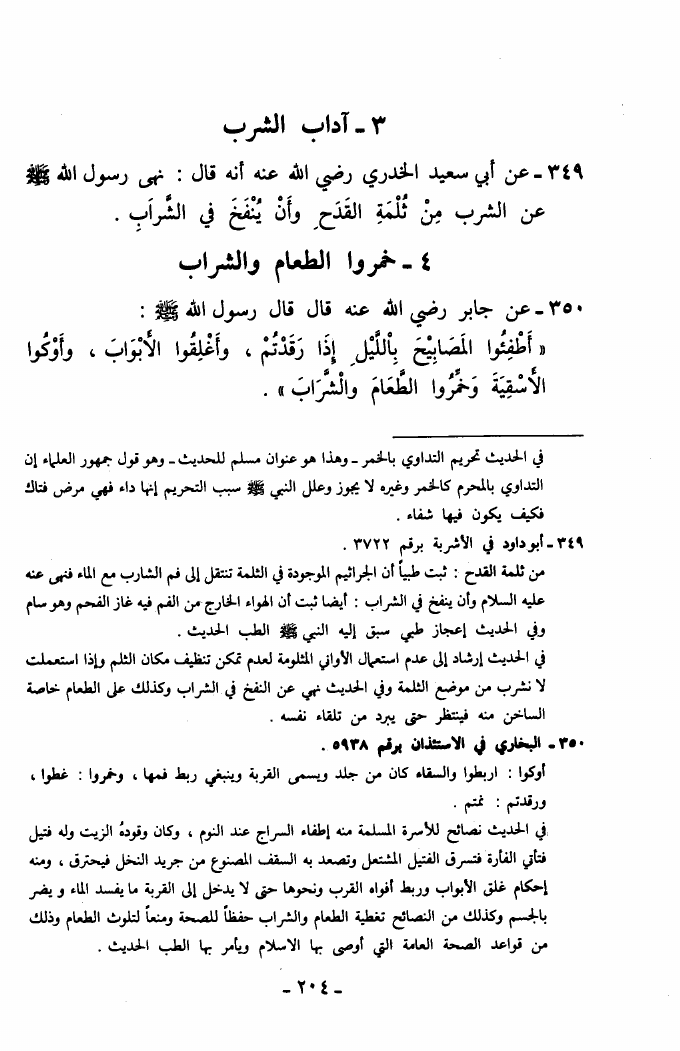 ٣ ـ آداب الشرب
٣٤٩ ـ عن أبي سعيد الخدري رضي الله عنه أنه قال : نهى رسول الله ﷺ
عن الشرب مِنْ ثُلْمَةِ القَدَحِ وأَنْ يُنْفَخَ في الشَّرَابِ .
٤ ـ خمروا الطعام والشراب
٣٥٠ ـ عن جابر رضي الله عنه قال قال رسول الله ﷺ :
« أَطْفِئُوا المَصَابِيْحَ بِاللَّيْلِ إِذَا رَقَدْتُمْ ، وأَغْلِقُوا الأَبْوَابَ ، وأَوْكُوا
الأَسْقِيَةَ وَخَمِّرُوا الطَّعَامَ والْشَّرَابَ » .
في الحديث تحريم التداوي بالخمر ـ وهذا هو عنوان مسلم للحديث ـ وهو قول جمهور العلماء إن
التداوي بالمحرم كالخمر وغيره لا يجوز وعلل النبي ﷺ سبب التحريم إنها داء فهي مرض فتاك
فكيف يكون فيها شفاء .
٣٤٩ ـ أبو داود في الأشربة برقم ٣٧٢٢ .
من ثلمة القدح : ثبت طبياً أن الجراثيم الموجودة في الثلمة تنتقل إلى فم الشارب مع الماء فنهى عنه
عليه السلام وأن ينفخ في الشراب : أيضا ثبت أن الهواء الخارج من الفم فيه غاز الفحم وهو سام
وفي الحديث إعجاز طبي سبق إليه النبي ﷺ الطب الحديث .
في الحديث إرشاد إلى عدم استعمال الأواني المثلومة لعدم تمكن تنظيف مكان الثلم وإذا استعملت
لا نشرب من موضع الثلمة وفي الحديث نهي عن النفخ في الشراب وكذلك على الطعام خاصة
الساخن منه فينتظر حتى يبرد من تلقاء نفسه .
٣٥٠ ـ البخاري في الاستئذان برقم ٥٩٣٨ .
أوكوا : اربطوا والسقاء كان من جلد ويسمى القربة وينبغي ربط فمها ، وخمروا : غطوا ،
ورقدتم : نمتم .
في الحديث نصائح للأسرة المسلمة منه إطفاء السراج عند النوم ، وكان وقودهُ الزيت وله فتيل
فتأتي الفأرة فتسرق الفتيل المشتعل وتصعد به السقف المصنوع من جريد النخل فيحترق ، ومنه
إحكام غلق الأبواب وربط أفواه القرب ونحوها حتى لا يدخل إلى القربة ما يفسد الماء ويضر
بالجسم وكذلك من النصائح تغطية الطعام والشراب حفظاً للصحة ومنعاً لتلوث الطعام وذلك
من قواعد الصحة العامة التي أوصى بها الاسلام ويأمر بها الطب الحديث .
ـ ٢٠٤ ـ